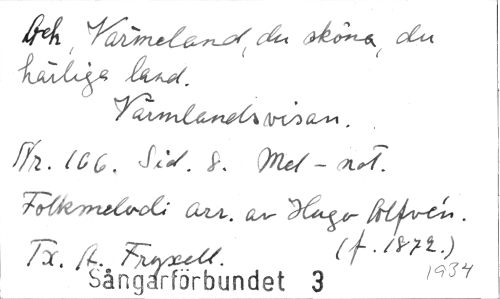 Ack, Värmeland, du sköna, du
härliga land.
Värmlandsvisan.
Nr. 106. Sid. 8. Mel-not.
Folkmelodi arr. av Hugo Alfvén.
(f. 1872.)
Tx. A. Fryxell.
Sångarförbundet 3
1934